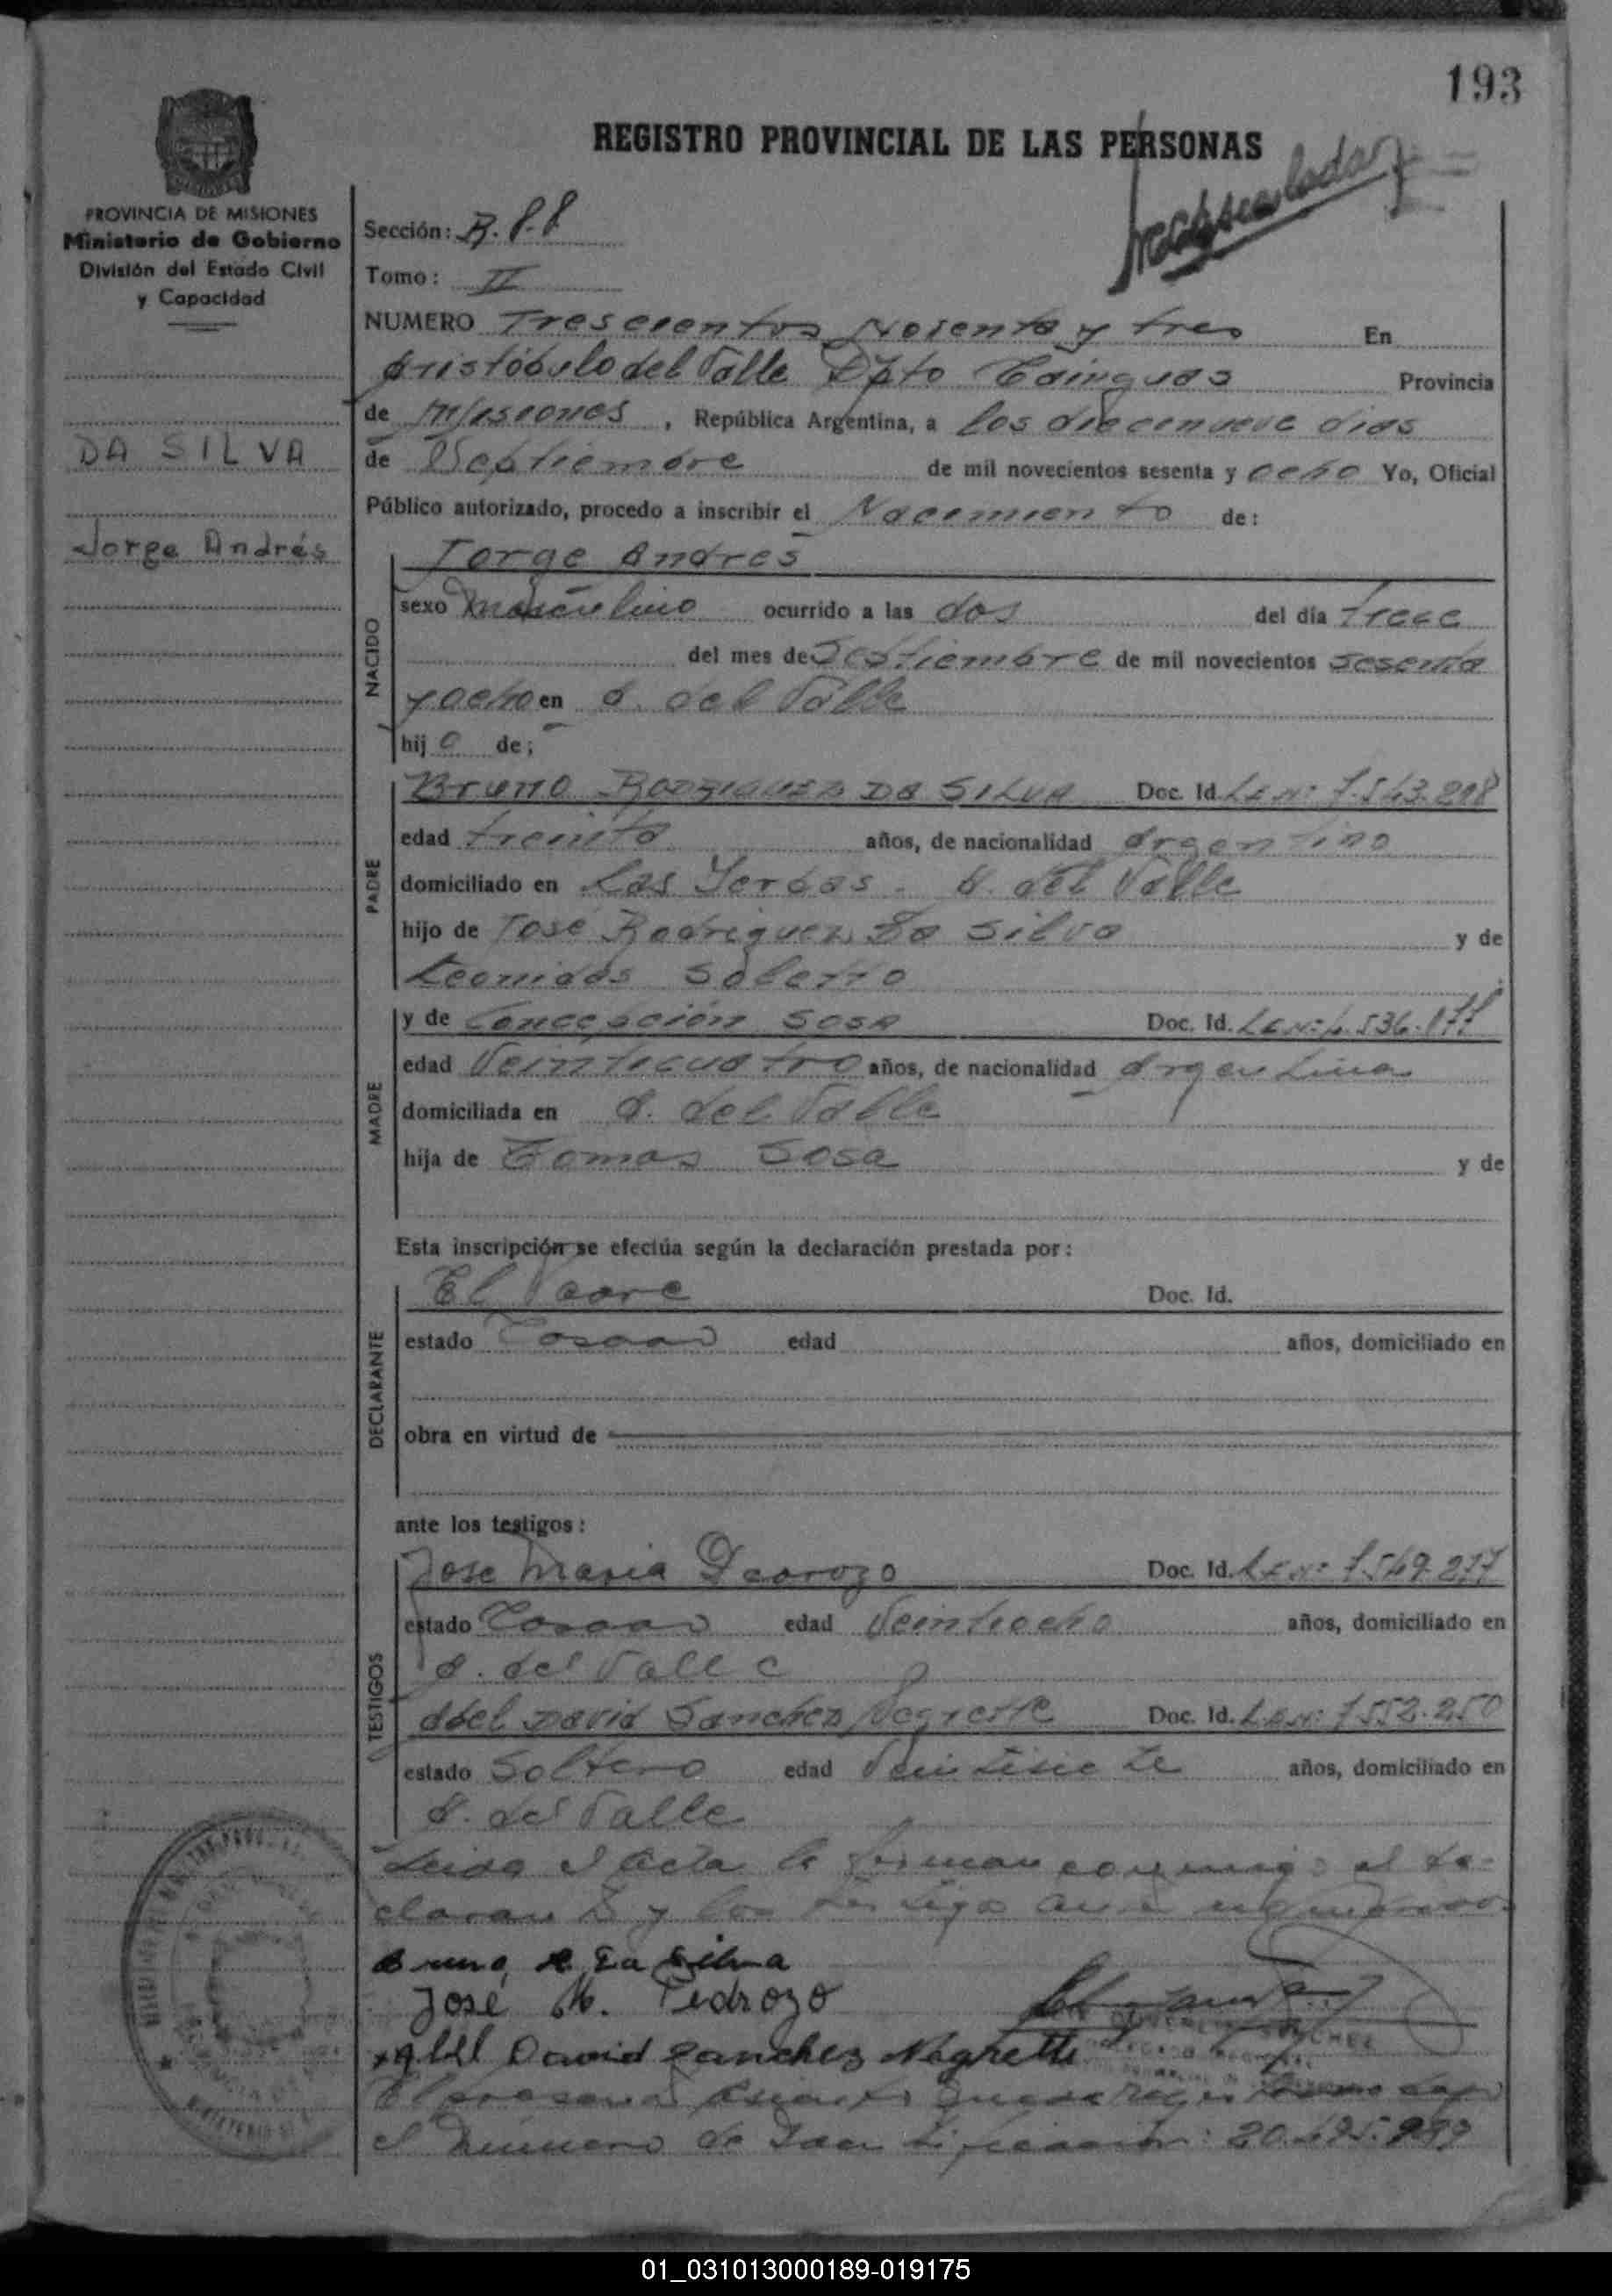 193
REGISTRO PROVINCIAL DE LAS PERSONAS
PROVINCIA DE MISIONES
Ministerio de Gobierno
División del Estado Civil
y Capacidad
DA SILVA
Jorge Andrés
Sección:
Tomo: II
NUMERO Trescientos Noventa y tres En
Aristóbulo del Valle Dpto Cainguas Provincia
de Misiones, República Argentina, a los diecenueve dias
de Septiembre de mil novecientos sesenta y ocho Yo, Oficial
Público autorizado, procedo a inscribir el Nacimiento de:
NACIDO
Jorge Andres
sexo Masculino ocurrido a las dos del día Trece
del mes de Septiembre de mil novecientos sesenta
y ocho en A. del Valle
hijo de;
PADRE
Bruno RODRIGUEZ DA SILVA Doc. Id. L.E.Nº
edad treinta años, de nacionalidad Argentino
domiciliado en Las Yerbas - A. del Valle
hijo de José Rodriguez Da Silva y de
Leonidas
MADRE
y de Concepción SOSA Doc. Id.
edad Veinticuatro años, de nacionalidad Argentina
domiciliada en A. del Valle
hija de Tomas Sosa y de
Esta inscripción se efectúa según la declaración prestada por:
DECLARANTE
El Padre Doc. Id.
estado Casado edad años, domiciliado en
obra en virtud de
ante los testigos:
TESTIGOS
Jose Maria Pedrozo Doc. Id. L.E.Nº
estado Casado edad Veintiocho años, domiciliado en
A. del Valle
Abel David Sanchez Negrette Doc. Id. L.E.Nº 7.552.250
estado Soltero edad Veintisiete años, domiciliado en
A. del Valle
Leida el acta la firman conmigo el de-
clarante y los testigos
Bruno R Da Silva
José M. Pedrozo
Abel David Sanchez Negrette
el Número de Identificación:
01_031013000189-019175